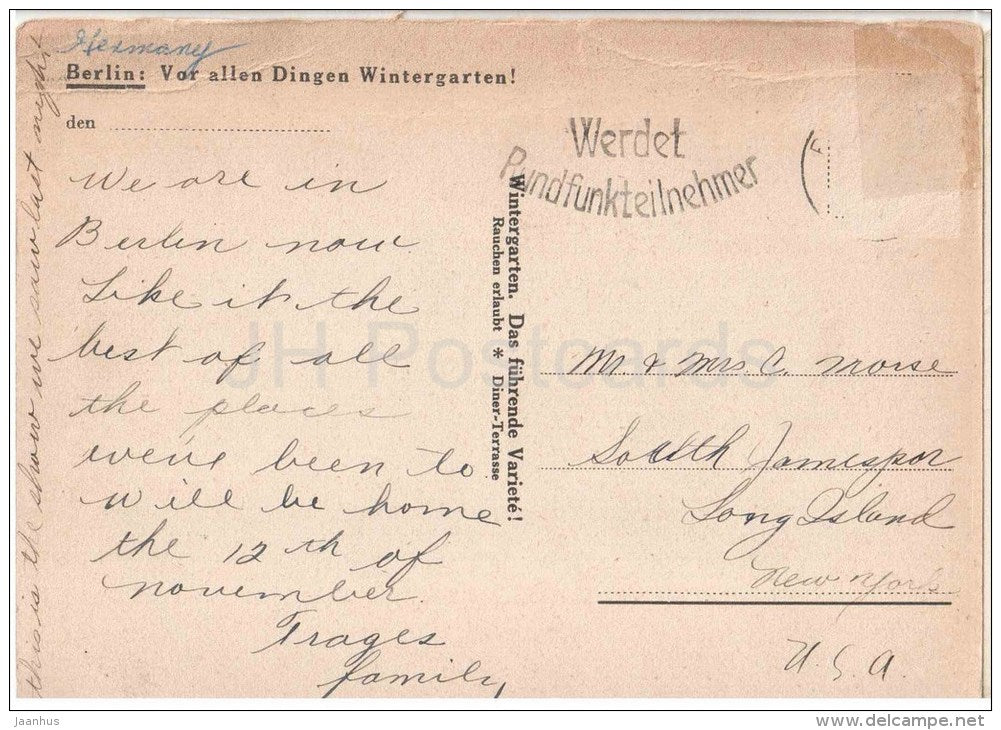 Germany
Berlin: Vor allen Dingen Wintergarten!
den
We are in
Berlin now.
Like it the
best of all
the places
weve been to
Will be home
the 12th of
november.
Trages
family,
this is the show we saw last night
Wintergarten. Das führende Varieté!
Rauchen erlaubt * Diner-Terrasse
Werdet
Rundfunkteilnehmer
Mr & Mrs C. Morse
South Jamespor
Long Island
New York
U.S.A.
JH Postcards
jaanhus
www.delcampe.net